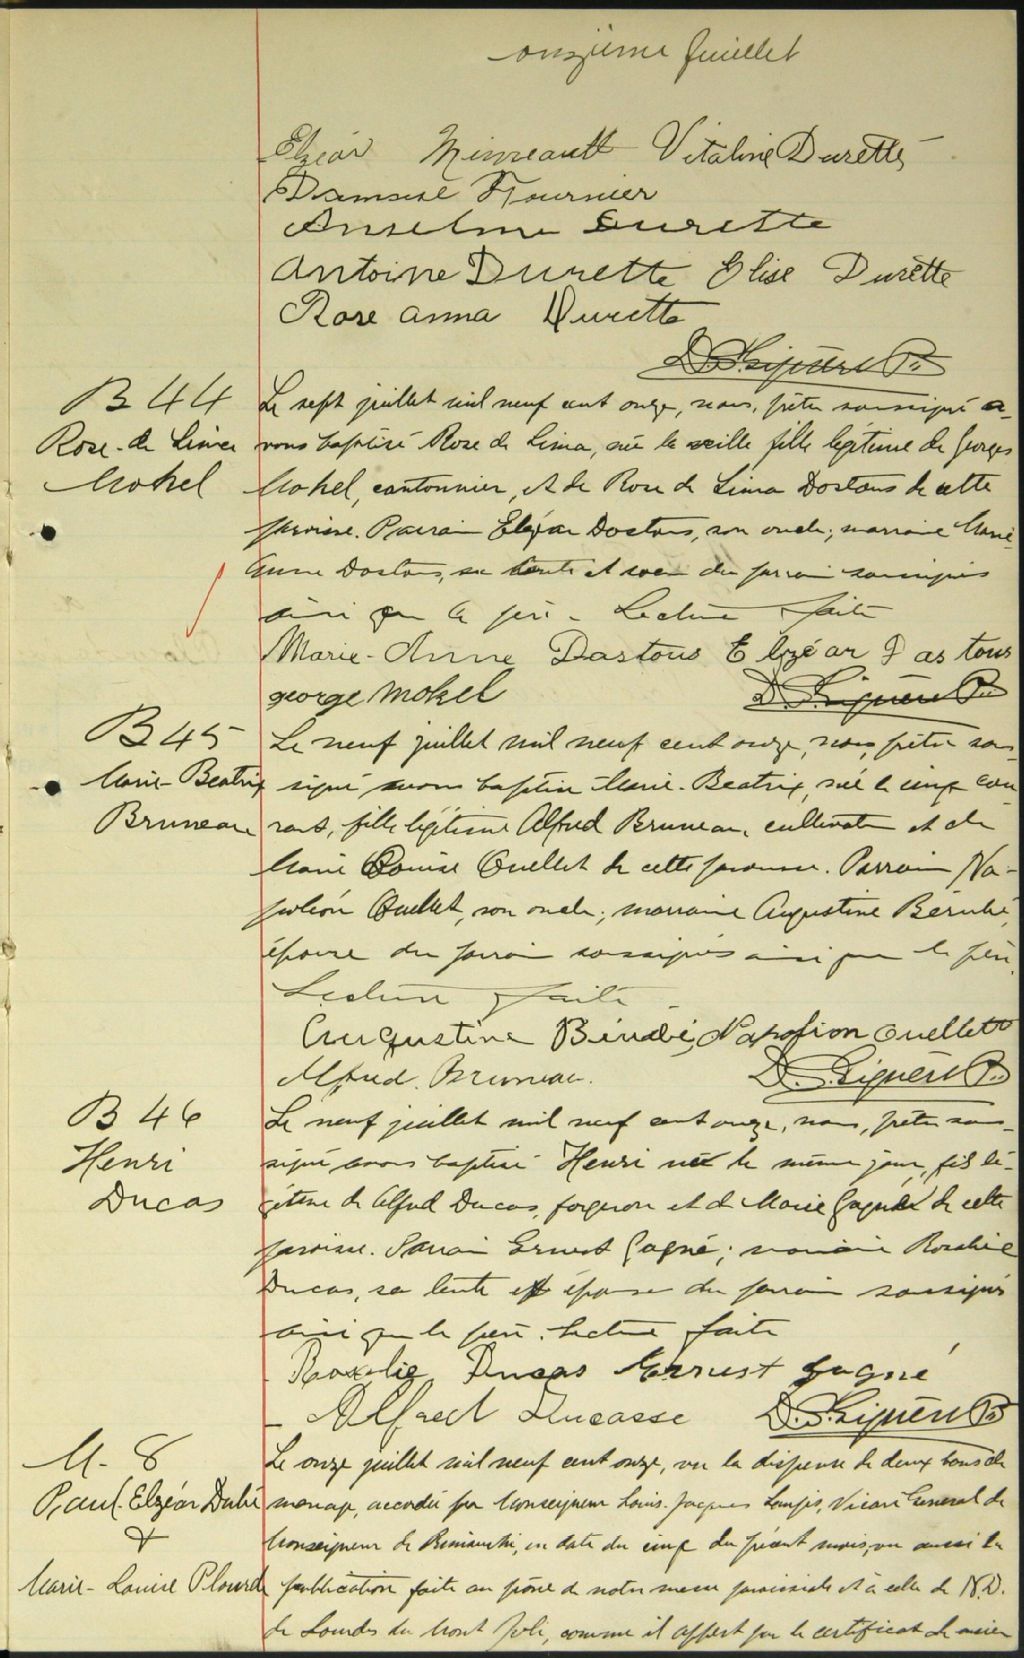 onzième feuillet
Elzéar Mimeault Vitaline Durette
Damase Fournier
Anselme Durette
Antoine Durette Elise Durette
Rose anna Durette
D. Ptre
B 44
Rose-de Lima
Mokel
Le sept juillet mil neuf cent onze, nous, prêtre soussigné a-
vons baptisé Rose de Lima, née la veille fille légitime de Georges
Mokel, cantonnier, et de Rose de Lima Dostous de cette
paroisse. Parrain Elzéar Dostous, son oncle; marraine Marie-
Anne Dostous, sa tante et soeur du parrain soussignés
ainsi que le père - Lecture faite
Marie-Anne Dastous Elzéar Dastous
george Mokel D. Ptre
B 45
Marie-Beatrix
Bruneau
Le neuf juillet mil neuf cent onze, nous, prêtre sous-
signé, avons baptisé Marie-Beatrix, née le cinq cou-
rant, fille légitime Alfred Bruneau, cultivateur et de
Marie Louise Ouellet de cette paroisse. Parrain Na-
poléon Ouellet, son oncle; marraine Augustine Bérubé,
épouse du parrain soussignés ainsi que le père
Lecture faite
Augustine Bérubé, Napoléon Ouellett
Alfred Bruneau. D. Ptre
B 46
Henri
Ducas
Le neuf juillet mil neuf cent onze, nous, prêtre sous-
signé, avons baptisé Henri né le même jour, fils lé-
gitime de Alfred Ducas, forgeron et de Marie Gagné de cette
paroisse. Parrain Ernest Gagné; marraine Rosalie
Ducas, sa tante et épouse du parrain soussignés
ainsi que le père. Lecture faite
Roxalie Ducas Ernest Gagné
Alfred Ducasse D. Ptre
M- 8
Paul-Elzéar Dubé
&
Marie-Louise Plourde
Le onze juillet mil neuf cent onze, vu la dispense de deux bans de
mariage, accordée par Monseigneur Louis-Jacques Langis, Vicaire General de
Monseigneur de Rimouski, en date du cinq du présent mois, vu aussi la
publication faite au prône de notre messe paroissiale et à celle de N.D.
de Lourdes du Mont Joli, comme il appert par le certificat de